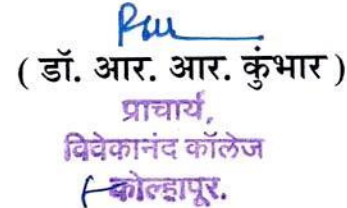 ( डॉ. आर. आर. कुंभार )
प्राचार्य,
विवेकानंद कॉलेज
कोल्हापूर.